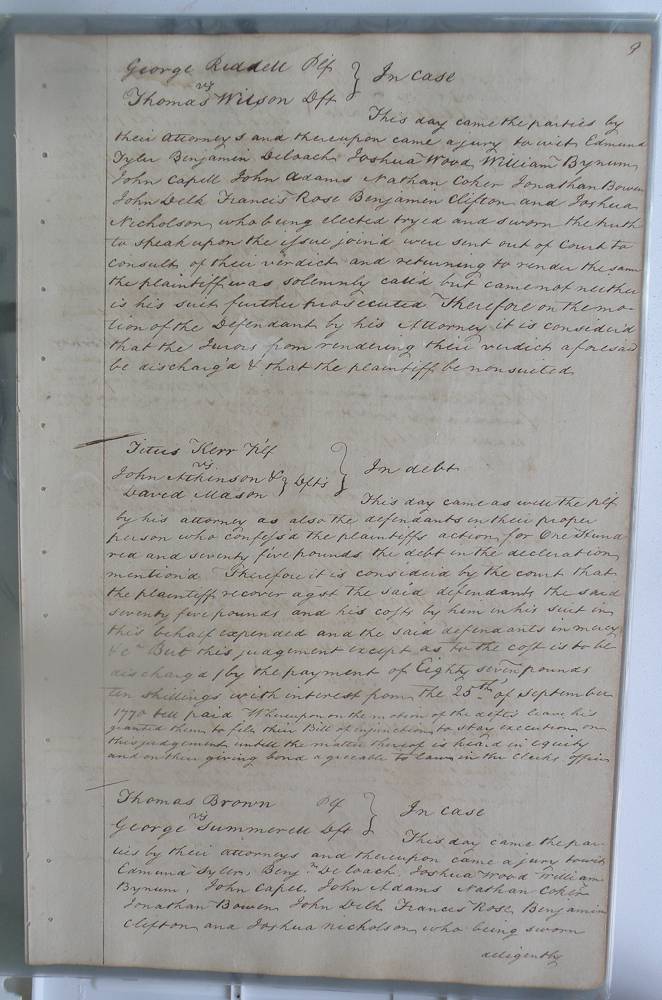 9
George Riddell Plf } In Case
vs
Thomas Wilson Dft
This day came the parties by
their attorneys and thereupon came a jury to wit Edmund
Tyler Benjamin Deloach, Joshua Wood, William Bynum,
John Capell John Adams Nathan Coker Jonathan Bowen
John Delk Francis Rose Benjamin Clifton and Joshua
Nicholson, who being elected tryed and sworn the truth
to speak upon the issue join'd were sent out of Court to
consult of their verdict and returning to render the same
the plaintiff was solemnly call'd but came not neither
is his suit further prosecuted Therefore on the mo-
tion of the Defendant by his Attorney it is consider'd
that the Jurors from rendering their verdict aforesaid
be discharg'd & that the plaintiff be nonsuited
Titus Kerr Plf
vs } In debt
John Atkinson & } Dfts
David Mason
This day came as well the plf
by his attorney as also the defendants in their proper
person who confess'd the plaintiffs action for One Hund
red and seventy five pounds the debt in the declaration
mention'd Therefore it is consider'd by the court that
the plaintiff recover agst the said defendants the said
seventy five pounds and his costs by him in his suit in
this behalf expended and the said defendants in mercy
&c But this judgement except as to the cost is to be
discharg'd by the payment of Eighty seven pounds
ten shillings with interest from the 25th of september
1770 till paid Whereupon on the motion of the defts leave his
granted them to file their Bill of injunction to stay execution on
this judgement untill the matter thereof is heard in equity
and on their giving bond agreeable to law in the Clerks office
Thomas Brown Plf } In Case
vs
George Summerell Dft
This day came the par-
ties by their attorneys and thereupon came a jury towit
Edmund Tyler, Benjn Deloach, Joshua Wood William
Bynum, John Capell John Adams Nathan Coker
Jonathan Bowen John Delk Francis Rose Benjamin
Clifton and Joshua nicholson, who being sworn
diligently